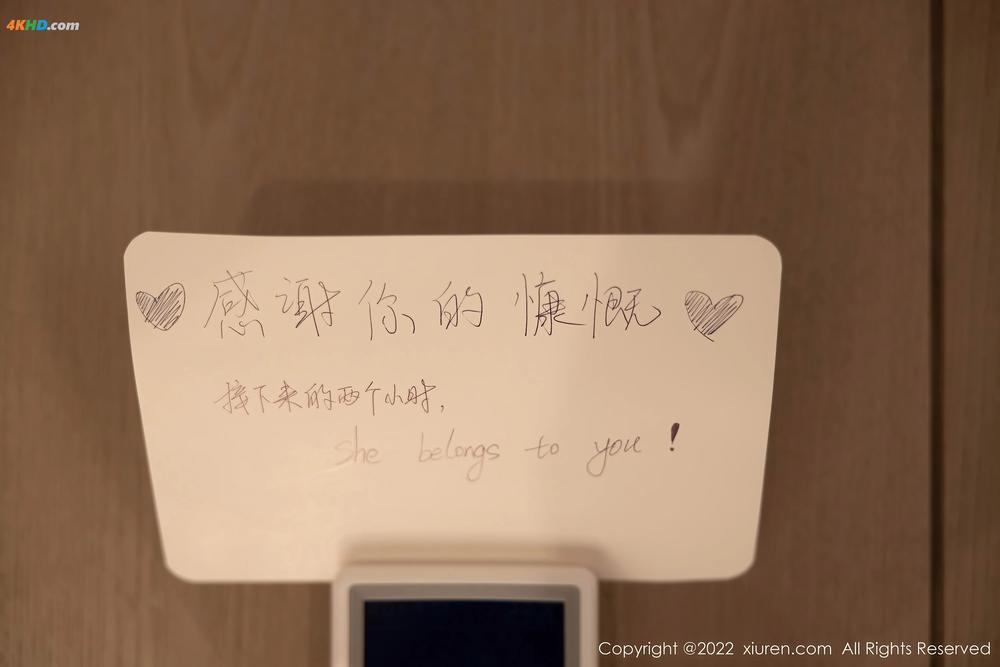 4KHD.com
感谢你的慷慨
接下来的两个小时,
She belongs to you!
Copyright @2022 xiuren.com All Rights Reserved